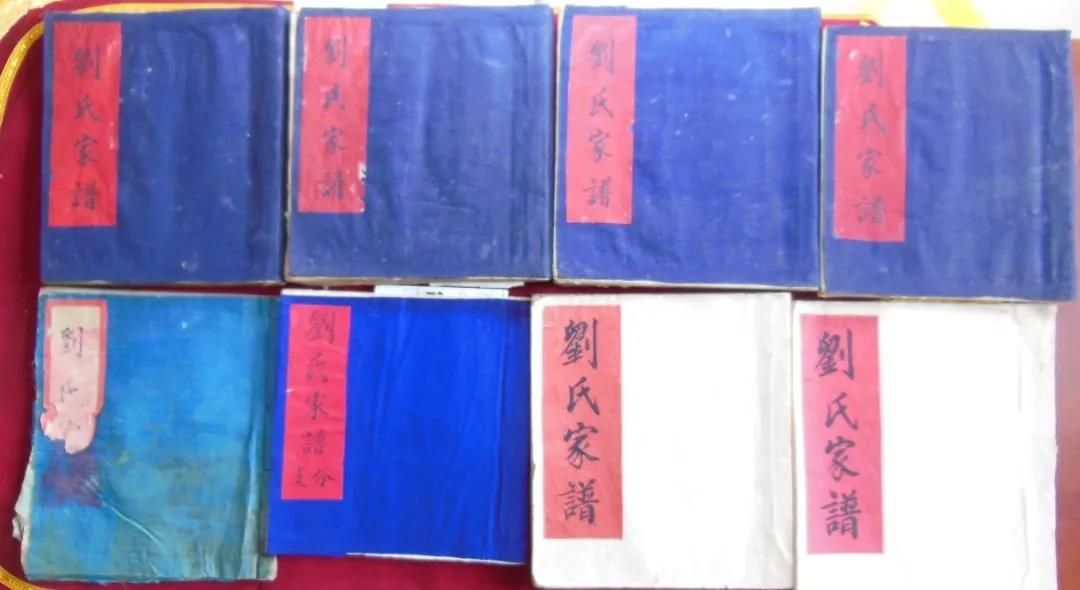 劉氏家譜
劉氏家譜
劉氏家譜
劉氏家譜
劉氏
劉氏家譜
分支
劉氏家譜
劉氏家譜